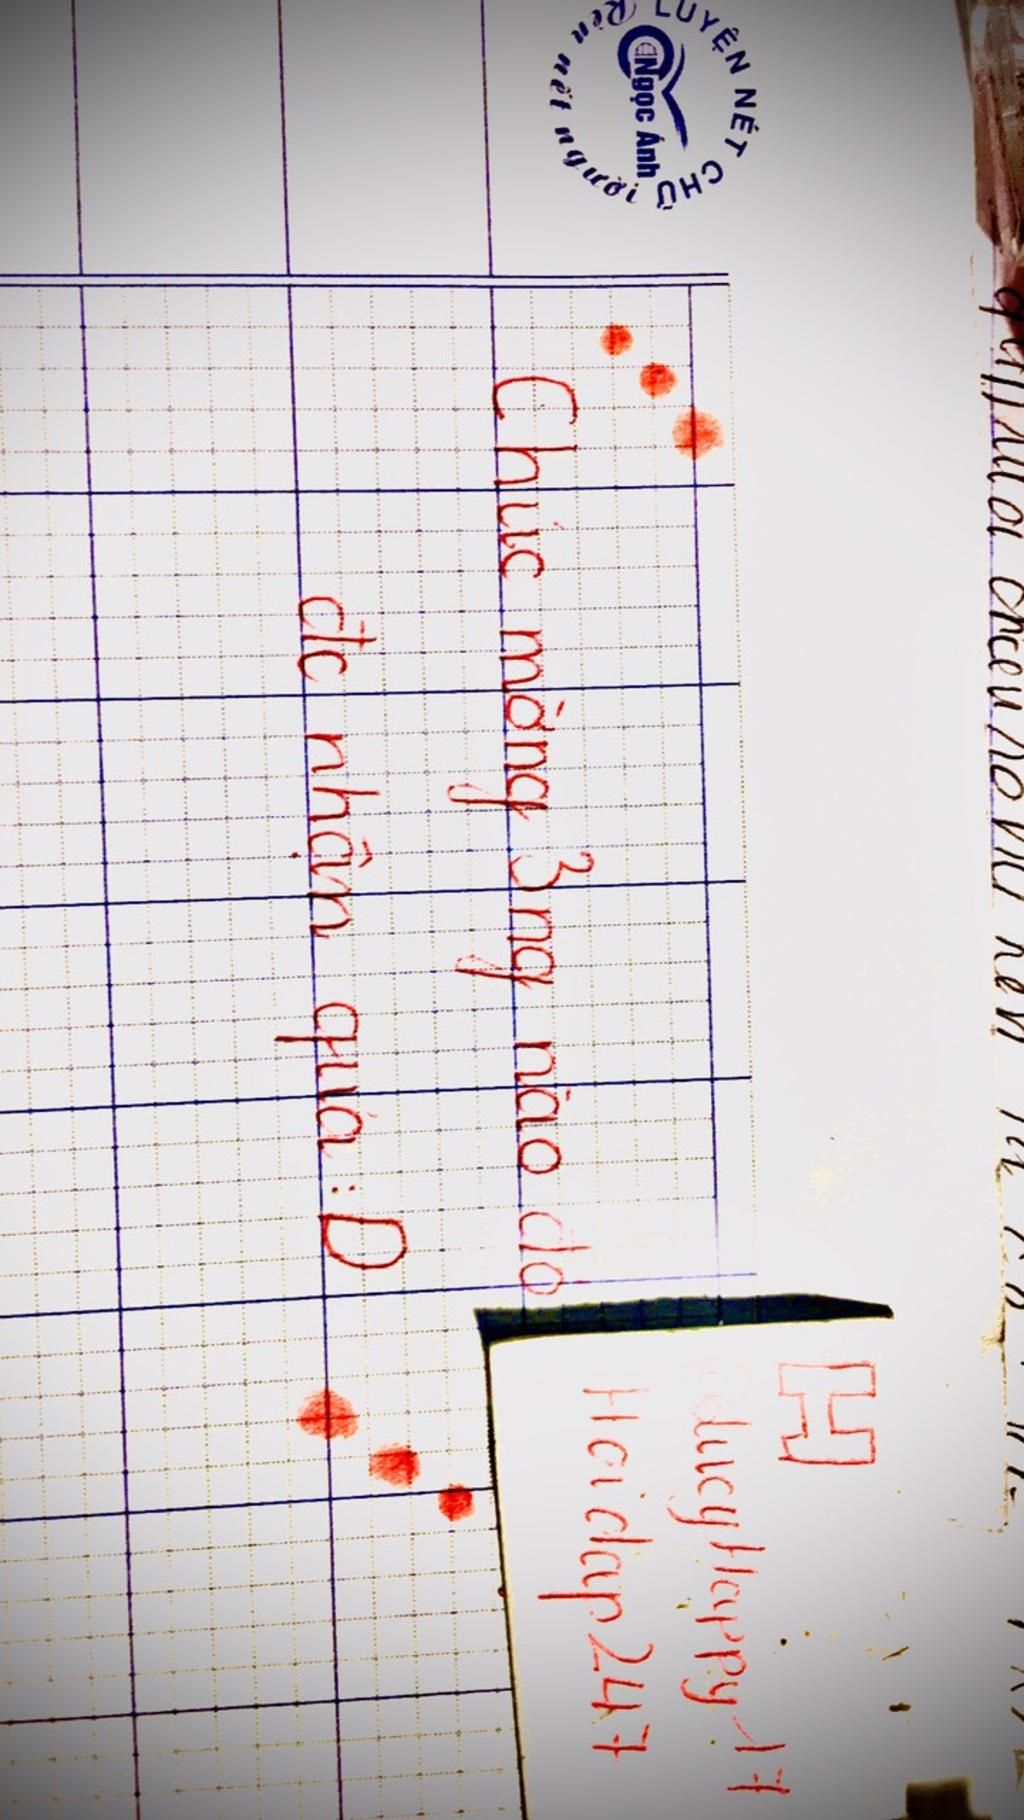 LUYỆN NÉT CHỮ
Rèn nết người
Ngọc Ánh
Chúc mừng 3 ng nào đó
đc nhận quà :D
H
LucyHappy-17
Hoidap247